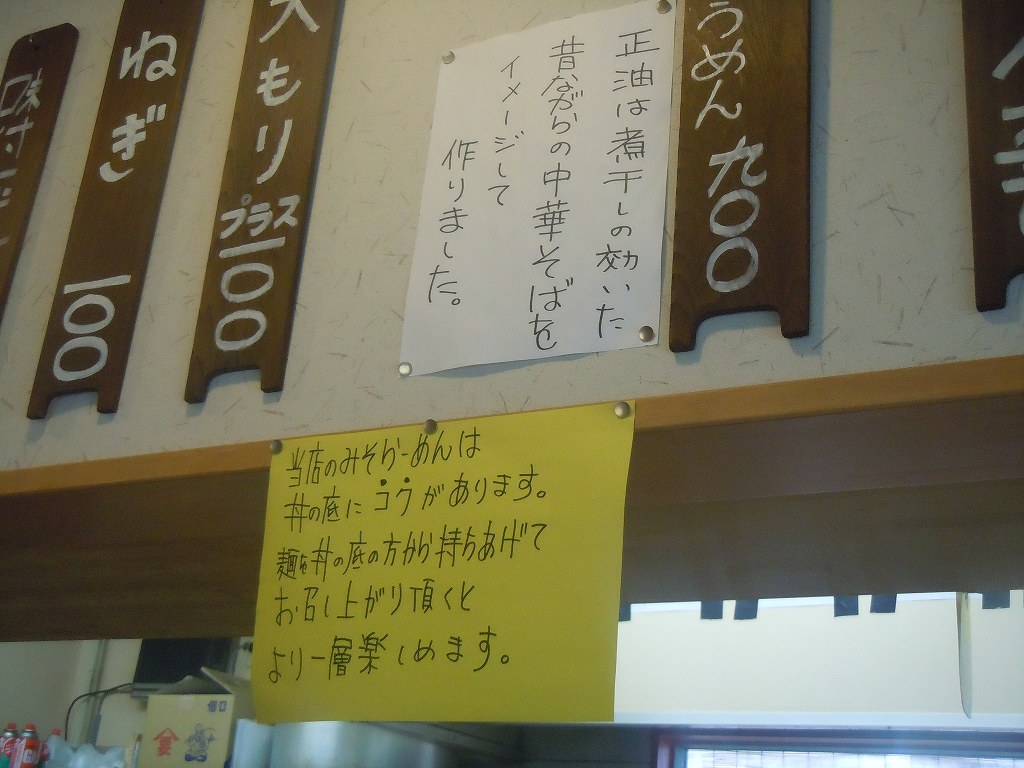 正油は煮干しの効いた
昔ながらの中華そばを
イメージして
作りました。
うめん 九〇〇
大もり プラス 一〇〇
ねぎ 一〇〇
味付
当店のみそらーめんは
丼の底にコクがあります。
麺を丼の底の方から持ちあげて
お召し上がり頂くと
より一層楽しめます。